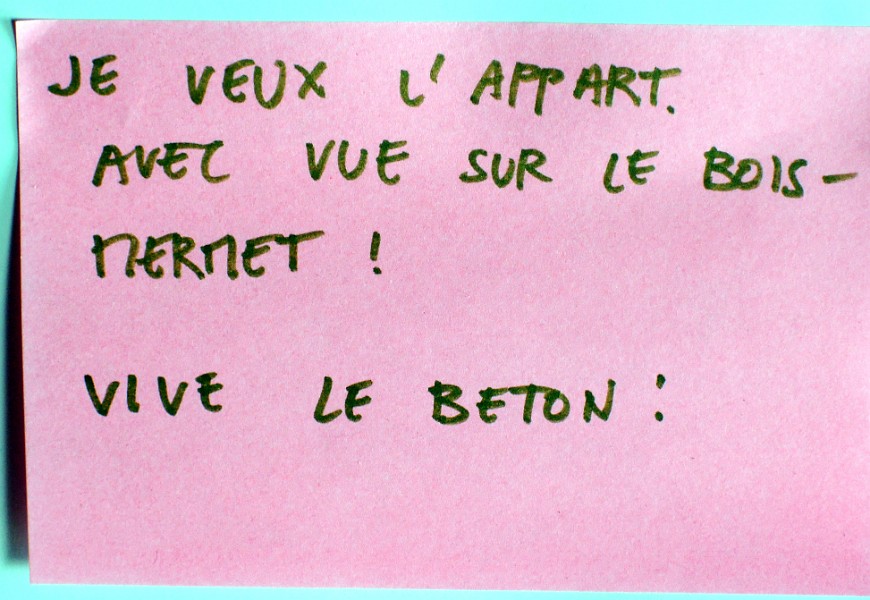 JE VEUX L'APPART.
AVEC VUE SUR LE BOIS-
MERMET !
VIVE LE BETON !